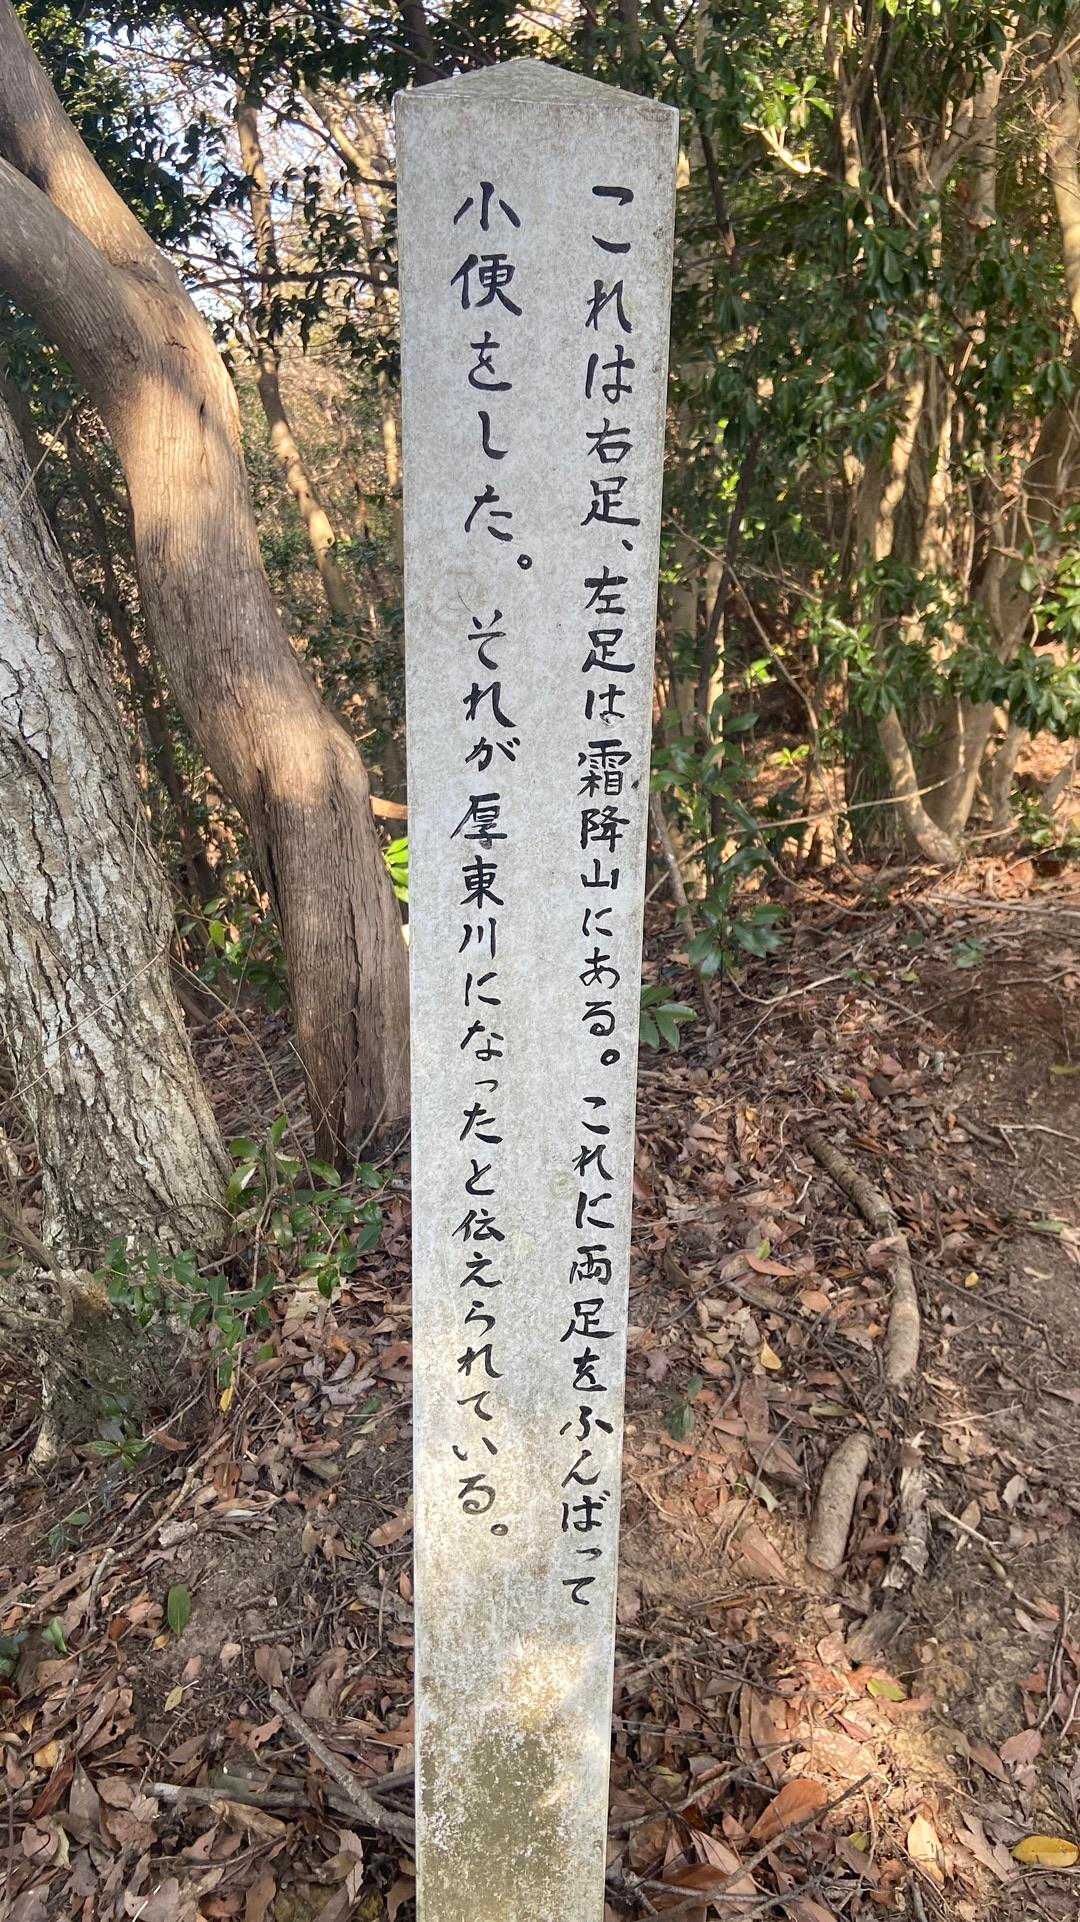 これは右足、左足は霜降山にある。これに両足をふんばって
小便をした。それが厚東川になったと伝えられている。